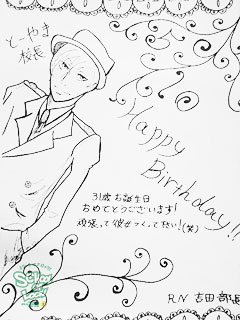 とーやま
校長
Happy
Birthday!!
31歳お誕生日
おめでとうございます!
頑張って彼女つくって下さい!(笑)
R.N 吉田部長